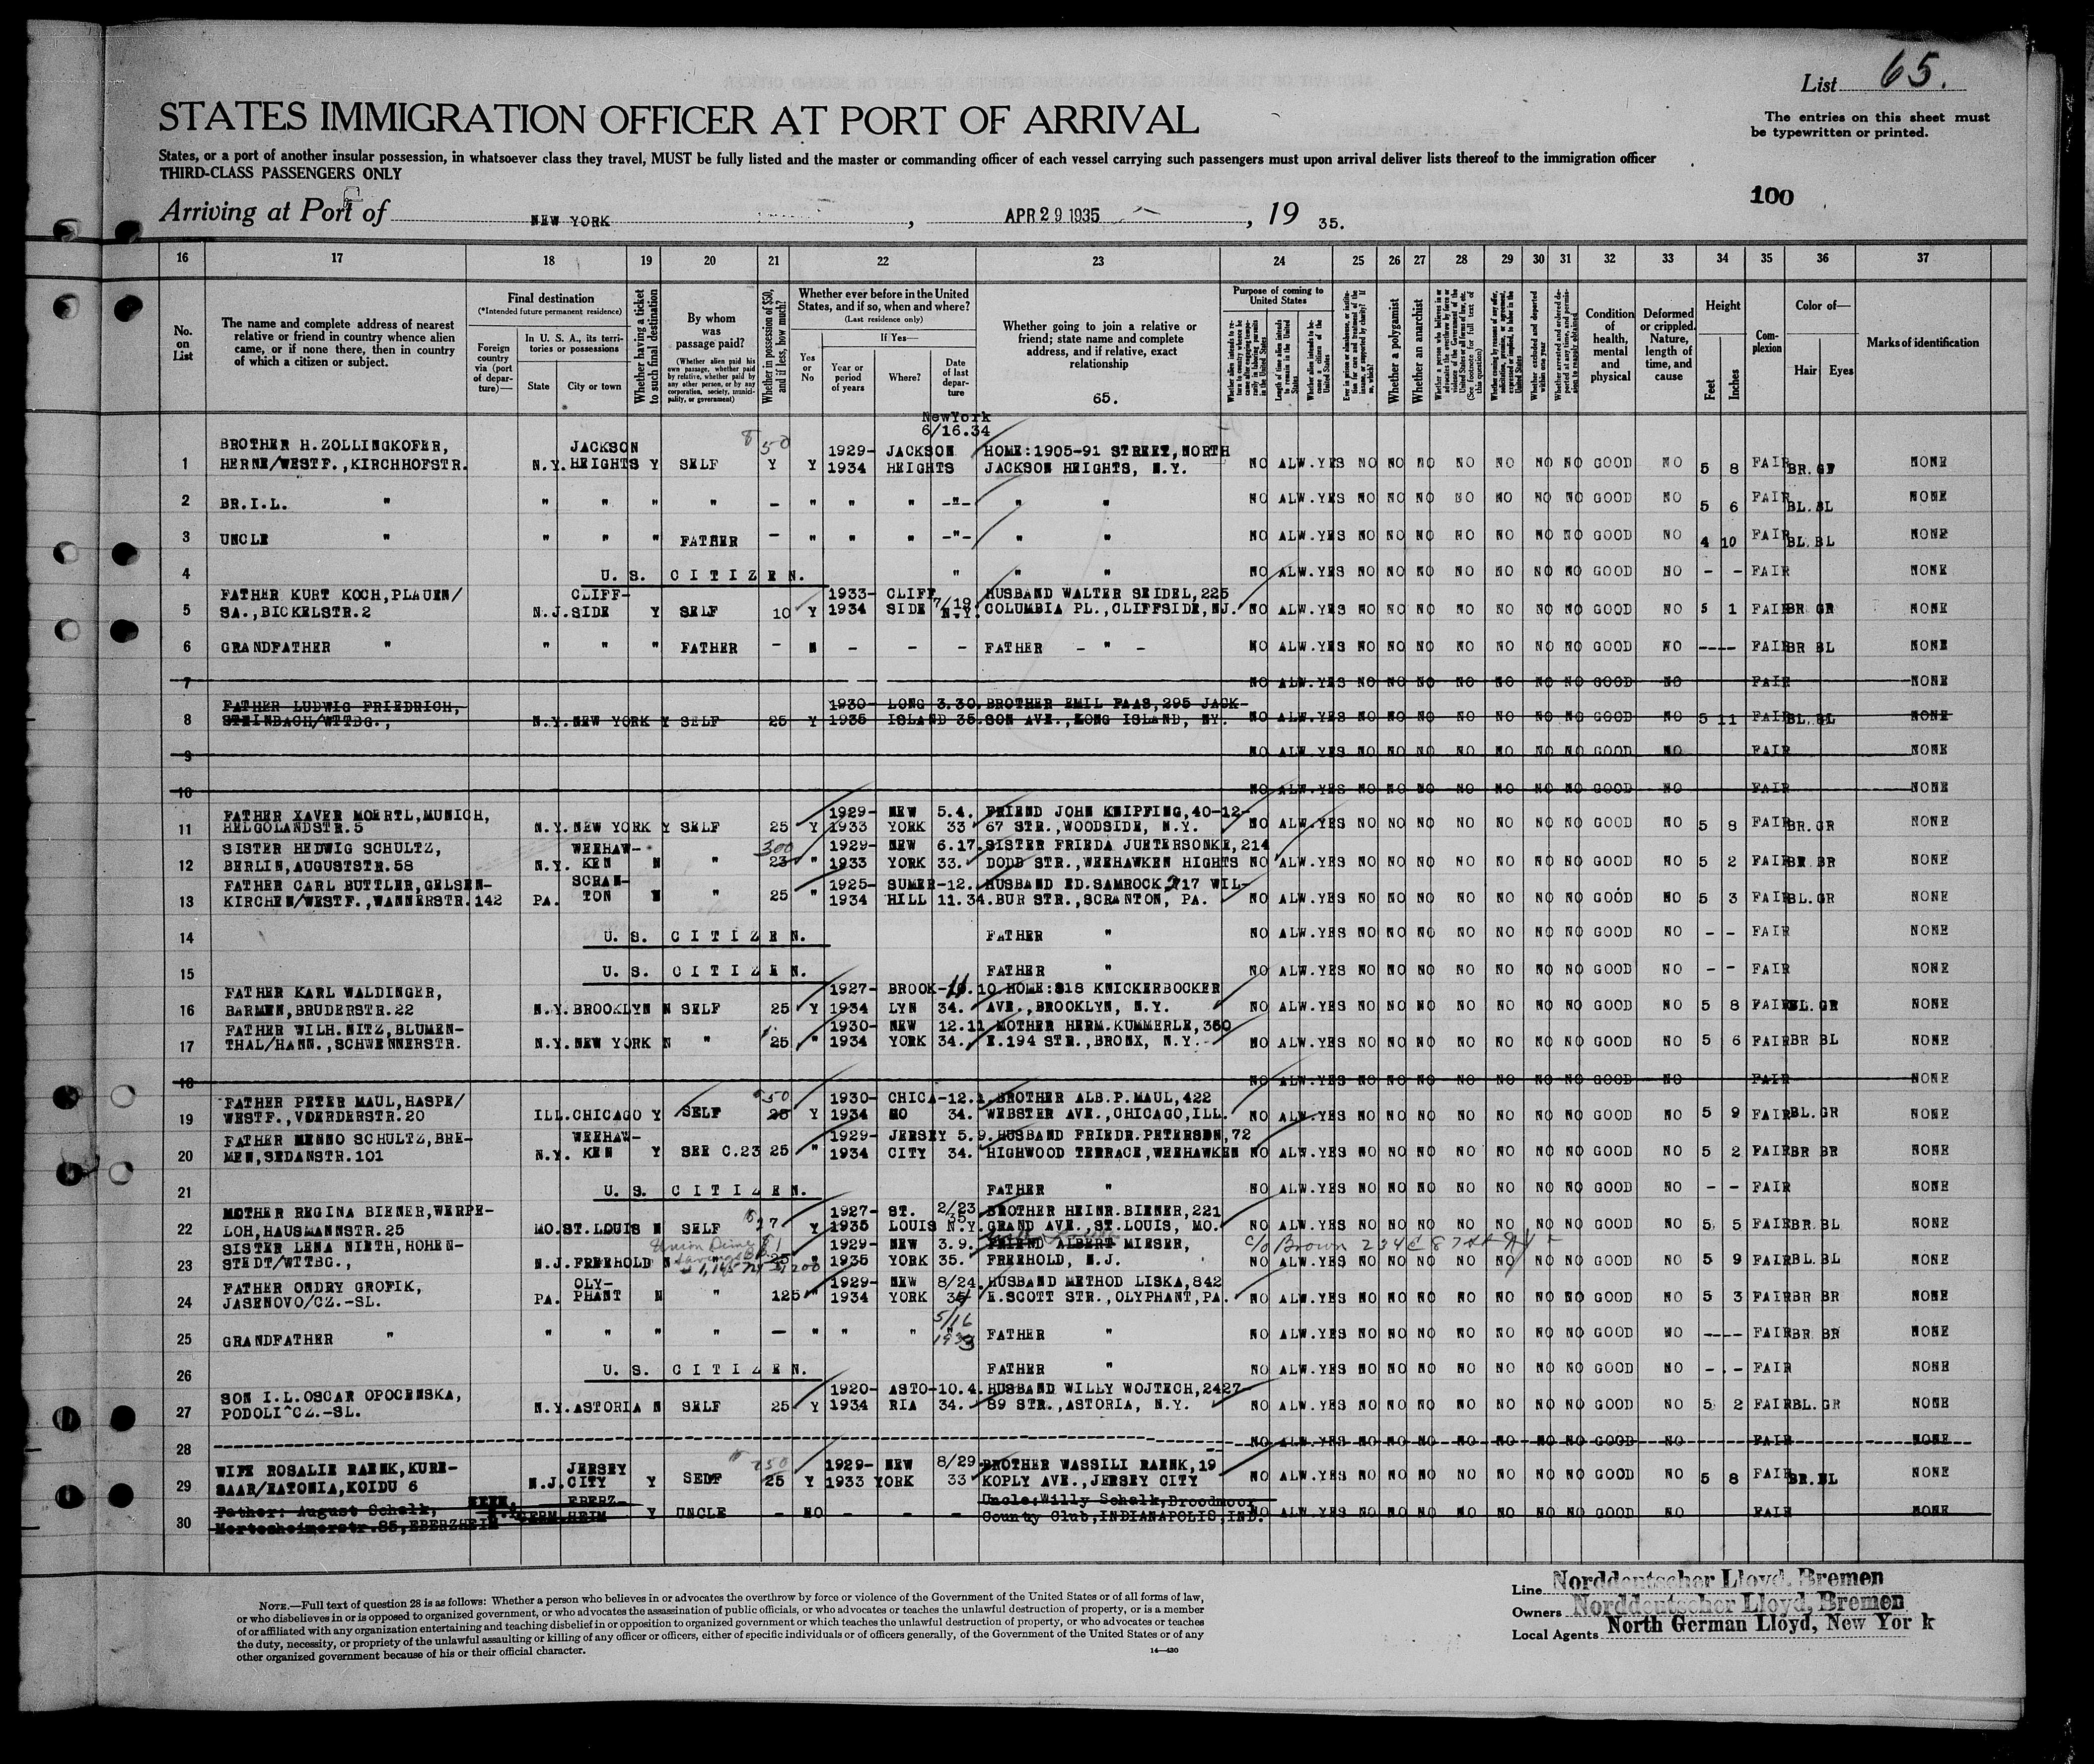 List 65.
STATES IMMIGRATION OFFICER AT PORT OF ARRIVAL
The entries on this sheet must
be typewritten or printed.
States, or a port of another insular possession, in whatsoever class they travel, MUST be fully listed and the master or commanding officer of each vessel carrying such passengers must upon arrival deliver lists thereof to the immigration officer
THIRD-CLASS PASSENGERS ONLY
100
Arriving at Port of NEW YORK , APR 29 1935 , 19 35.
16 17 18 19 20 21 22 23 24 25 26 27 28 29 30 31 32 33 34 35 36 37
No. on List
The name and complete address of nearest relative or friend in country whence alien came, or if none there, then in country of which a citizen or subject.
Final destination
(*Intended future permanent residence)
Foreign country via (port of departure)—
In U. S. A., its territories or possessions
State City or town
Whether having a ticket to such final destination
By whom was passage paid?
(Whether alien paid his own passage, whether paid by relative, whether paid by any other person, or by any corporation, society, municipality, or government)
Whether in possession of $50, and if less, how much?
Whether ever before in the United States, and if so, when and where?
(Last residence only)
Yes or No
If Yes—
Year or period of years Where? Date of last departure
Whether going to join a relative or friend; state name and complete address, and if relative, exact relationship
65.
Purpose of coming to United States
Whether a polygamist
Whether an anarchist
Condition of health, mental and physical
Deformed or crippled. Nature, length of time, and cause
Height
Feet Inches
Complexion
Color of—
Hair Eyes
Marks of identification
NewYork
6/16.34
BROTHER H.ZOLLINGKOFER, JACKSON 50 1929- JACKSON HOME:1905-91 STREET,NORTH
1 HERNE/WESTF.,KIRCHHOFSTR. N.Y. HEIGHTS Y SELF Y Y 1934 HEIGHTS JACKSON HEIGHTS, N.Y. NO ALW.YES NO NO NO NO NO NO NO GOOD NO 5 8 FAIR BR. NONE
2 BR.I.L. " " " " " - " " " -"- " " NO ALW.YES NO NO NO NO NO NO NO GOOD NO 5 6 FAIR BL. BL NONE
3 UNCLE " " " " FATHER - " " " -"- " " NO ALW.YES NO NO NO NO NO NO NO GOOD NO 4 10 FAIR BL. BL NONE
4 U. S. CITIZEN. " " " NO ALW.YES NO NO NO NO NO NO NO GOOD NO - - FAIR NONE
FATHER KURT KOCH,PLAUEN/ CLIFF- 1933- CLIFF HUSBAND WALTER SEIDEL,225
5 SA.,BICKELSTR.2 N.J. SIDE Y SELF 10 Y 1934 SIDE 7/19 N.Y. COLUMBIA PL.,CLIFFSIDE,NJ. NO ALW.YES NO NO NO NO NO NO NO GOOD NO 5 1 FAIR BR GR NONE
6 GRANDFATHER " " " " FATHER - N - - - FATHER - " - NO ALW.YES NO NO NO NO NO NO NO GOOD NO ---- FAIR BR BL NONE
7 NO ALW.YES NO NO NO NO NO NO NO GOOD NO FAIR NONE
FATHER LUDWIG FRIEDRICH, 1930- LONG 3.30. BROTHER EMIL FAAS,295 JACK-
8 STEINBACH/WTTBG., N.Y. NEW YORK Y SELF 25 Y 1935 ISLAND 35. SON AVE.,LONG ISLAND, NY. NO ALW.YES NO NO NO NO NO NO NO GOOD NO 5 11 FAIR BL. BL NONE
9 NO ALW.YES NO NO NO NO NO NO NO GOOD NO FAIR NONE
10 NO ALW.YES NO NO NO NO NO NO NO GOOD NO FAIR NONE
FATHER XAVER MOERTL,MUNICH, 1929- NEW 5.4. FRIEND JOHN KNIPFING,40-12-
11 HELGOLANDSTR.5 N.Y. NEW YORK Y SELF 25 Y 1933 YORK 33 67 STR.,WOODSIDE, N.Y. NO ALW.YES NO NO NO NO NO NO NO GOOD NO 5 8 FAIR BR.GR NONE
SISTER HEDWIG SCHULTZ, WEEHAW- 300 1929- NEW 6.17. SISTER FRIEDA JUETERSONKE,214
12 BERLIN,AUGUSTSTR.58 N.Y. KEN N " 23 " 1933 YORK 33. DODD STR.,WEEHAWKEN HIGHTS NO ALW.YES NO NO NO NO NO NO NO GOOD NO 5 2 FAIR BR BR NONE
FATHER CARL BUTTLER,GELSEN- SCRAN- 1925- SUMER- 12. HUSBAND ED.SAMROCK 717 WIL-
13 KIRCHEN/WESTF.,WANNERSTR.142 PA. TON N " 25 " 1934 HILL 11.34. BUR STR.,SCRANTON, PA. NO ALW.YES NO NO NO NO NO NO NO GOOD NO 5 3 FAIR BL.GR NONE
14 U. S. CITIZEN. FATHER " NO ALW.YES NO NO NO NO NO NO NO GOOD NO - - FAIR NONE
15 U. S. CITIZEN. FATHER " NO ALW.YES NO NO NO NO NO NO NO GOOD NO - - FAIR NONE
FATHER KARL WALDINGER, 1927- BROOK- 11 10 HOME:818 KNICKERBOCKER
16 BARMEN,BRUDERSTR.22 N.Y. BROOKLYN N SELF 25 Y 1934 LYN 34. AVE.,BROOKLYN, N.Y. NO ALW.YES NO NO NO NO NO NO NO GOOD NO 5 8 FAIR BL. GR NONE
FATHER WILH.NITZ,BLUMEN- 1930- NEW 12.11 MOTHER HERM.KUMMERLE,350
17 THAL/HANN.,SCHWENNERSTR. N.Y. NEW YORK N " 25 " 1934 YORK 34. E.194 STR.,BRONX, N.Y. NO ALW.YES NO NO NO NO NO NO NO GOOD NO 5 6 FAIR BR BL NONE
18 NO ALW.YES NO NO NO NO NO NO NO GOOD NO FAIR NONE
FATHER PETER MAUL,HASPE/ 50 1930- CHICA- 12.1. BROTHER ALB.P.MAUL,422
19 WESTF.,VOERDERSTR.20 ILL. CHICAGO Y SELF 25 Y 1934 GO 34. WEBSTER AVE.,CHICAGO,ILL. NO ALW.YES NO NO NO NO NO NO NO GOOD NO 5 9 FAIR BL. GR NONE
FATHER MENNO SCHULTZ,BRE- WEEHAW- 1929- JERSEY 5.9. HUSBAND FRIEDR.PETERSEN,72
20 MEN,SEDANSTR.101 N.Y. KEN Y SEE C.23 25 " 1934 CITY 34. HIGHWOOD TERRACE,WEEHAWKEN NO ALW.YES NO NO NO NO NO NO NO GOOD NO 5 2 FAIR BR BR NONE
21 U. S. CITIZEN. FATHER " NO ALW.YES NO NO NO NO NO NO NO GOOD NO - - FAIR NONE
MOTHER REGINA BIENER,WERPE- 1927- ST. 2/23 BROTHER HEINR.BIENER,221
22 LOH,HAUSMANNSTR.25 MO. ST.LOUIS N SELF 27 Y 1935 LOUIS 35. N.Y. GRAND AVE.,ST.LOUIS, MO. NO ALW.YES NO NO NO NO NO NO NO GOOD NO 5 5 FAIR BR. BL NONE
SISTER LENA NIETH,HOHEN- Union Dime 1929- NEW 3.9. FRIEND ALBERT MIESER, c/o Brown 234 E 87th
23 STEDT/WTTBG., N.J. FREEHOLD N 25 " 1935 YORK 35. FREEHOLD, N.J. NO ALW.YES NO NO NO NO NO NO NO GOOD NO 5 9 FAIR BL. BL NONE
FATHER ONDRY GROFIK, OLY- 1929- NEW 8/24. HUSBAND METHOD LISKA,842
24 JASENOVO/CZ.-SL. PA. PHANT N " 125 " 1934 YORK 34 E.SCOTT STR.,OLYPHANT,PA. NO ALW.YES NO NO NO NO NO NO NO GOOD NO 5 3 FAIR BR BR NONE
5/16
25 GRANDFATHER " " " " " - " " " 1933 FATHER " NO ALW.YES NO NO NO NO NO NO NO GOOD NO ---- FAIR BR. BR NONE
26 U. S. CITIZEN. FATHER " NO ALW.YES NO NO NO NO NO NO NO GOOD NO - - FAIR NONE
SON I.L.OSCAR OPOCENSKA, 1920- ASTO- 10.4. HUSBAND WILLY WOJTECH,2427
27 PODOLI^CZ.-SL. N.Y. ASTORIA N SELF 25 Y 1934 RIA 34. 89 STR.,ASTORIA, N.Y. NO ALW.YES NO NO NO NO NO NO NO GOOD NO 5 2 FAIR BL. GR NONE
28 NO ALW.YES NO NO NO NO NO NO NO GOOD NO FAIR NONE
WIFE ROSALIE RAENK,KURE- JERSEY 250 1929- NEW 8/29. BROTHER WASSILI RAENK,19
29 SAAR/EATONIA,KOIDU 6 N.J. CITY Y SELF 25 Y 1933 YORK 33 KOPLY AVE.,JERSEY CITY NO ALW.YES NO NO NO NO NO NO NO GOOD NO 5 8 FAIR BR. BL NONE
Father: August Schalk, EBERZ- Uncle:Willy Schalk,Broodmoor
30 Mertesheimerstr.85,EBERZHEIM GERM. HEIM Y UNCLE - NO - - - Country Club,INDIANAPOLIS,IND. NO ALW.YES NO NO NO NO NO NO NO GOOD NO FAIR NONE
NOTE.—Full text of question 28 is as follows: Whether a person who believes in or advocates the overthrow by force or violence of the Government of the United States or of all forms of law,
or who disbelieves in or is opposed to organized government, or who advocates the assassination of public officials, or who advocates or teaches the unlawful destruction of property, or is a member
of or affiliated with any organization entertaining and teaching disbelief in or opposition to organized government or which teaches the unlawful destruction of property, or who advocates or teaches
the duty, necessity, or propriety of the unlawful assaulting or killing of any officer or officers, either of specific individuals or of officers generally, of the Government of the United States or of any
other organized government because of his or their official character.
14—430
Line Norddeutscher Lloyd, Bremen
Owners Norddeutscher Lloyd, Bremen
Local Agents North German Lloyd, New York